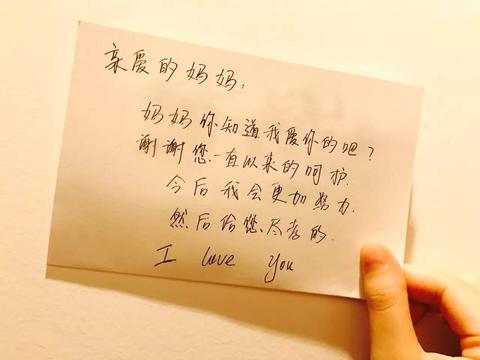 亲爱的妈妈，
妈妈你知道我爱你的吧？
谢谢您一直以来的呵护.
今后我会更加努力.
然后给您尽孝的.
I love you